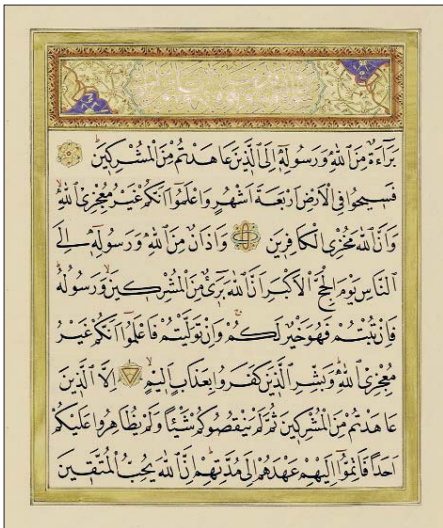 بَرَآءَةٌ مِنَ اللّٰهِ وَرَسُولِهٖٓ اِلَى الَّذٖينَ عَاهَدْتُمْ مِنَ الْمُشْرِكٖينَ
فَسٖيحُوا فِي الْاَرْضِ اَرْبَعَةَ اَشْهُرٍ وَاعْلَمُٓوا اَنَّكُمْ غَيْرُ مُعْجِزِي اللّٰهِ
وَاَنَّ اللّٰهَ مُخْزِي الْكَافِرٖينَ وَاَذَانٌ مِنَ اللّٰهِ وَرَسُولِهٖٓ اِلَى
النَّاسِ يَوْمَ الْحَجِّ الْاَكْبَرِ اَنَّ اللّٰهَ بَرٖٓيءٌ مِنَ الْمُشْرِكٖينَ وَرَسُولُهُ
فَاِنْ تُبْتُمْ فَهُوَ خَيْرٌ لَكُمْ وَاِنْ تَوَلَّيْتُمْ فَاعْلَمُٓوا اَنَّكُمْ غَيْرُ
مُعْجِزِي اللّٰهِ وَبَشِّرِ الَّذٖينَ كَفَرُوا بِعَذَابٍ اَلٖيمٍ اِلَّا الَّذٖينَ
عَاهَدْتُمْ مِنَ الْمُشْرِكٖينَ ثُمَّ لَمْ يَنْقُصُوكُمْ شَيْـًٔا وَلَمْ يُظَاهِرُوا عَلَيْكُمْ
اَحَدًا فَاَتِمُّٓوا اِلَيْهِمْ عَهْدَهُمْ اِلٰى مُدَّتِهِمْ اِنَّ اللّٰهَ يُحِبُّ الْمُتَّقٖينَ